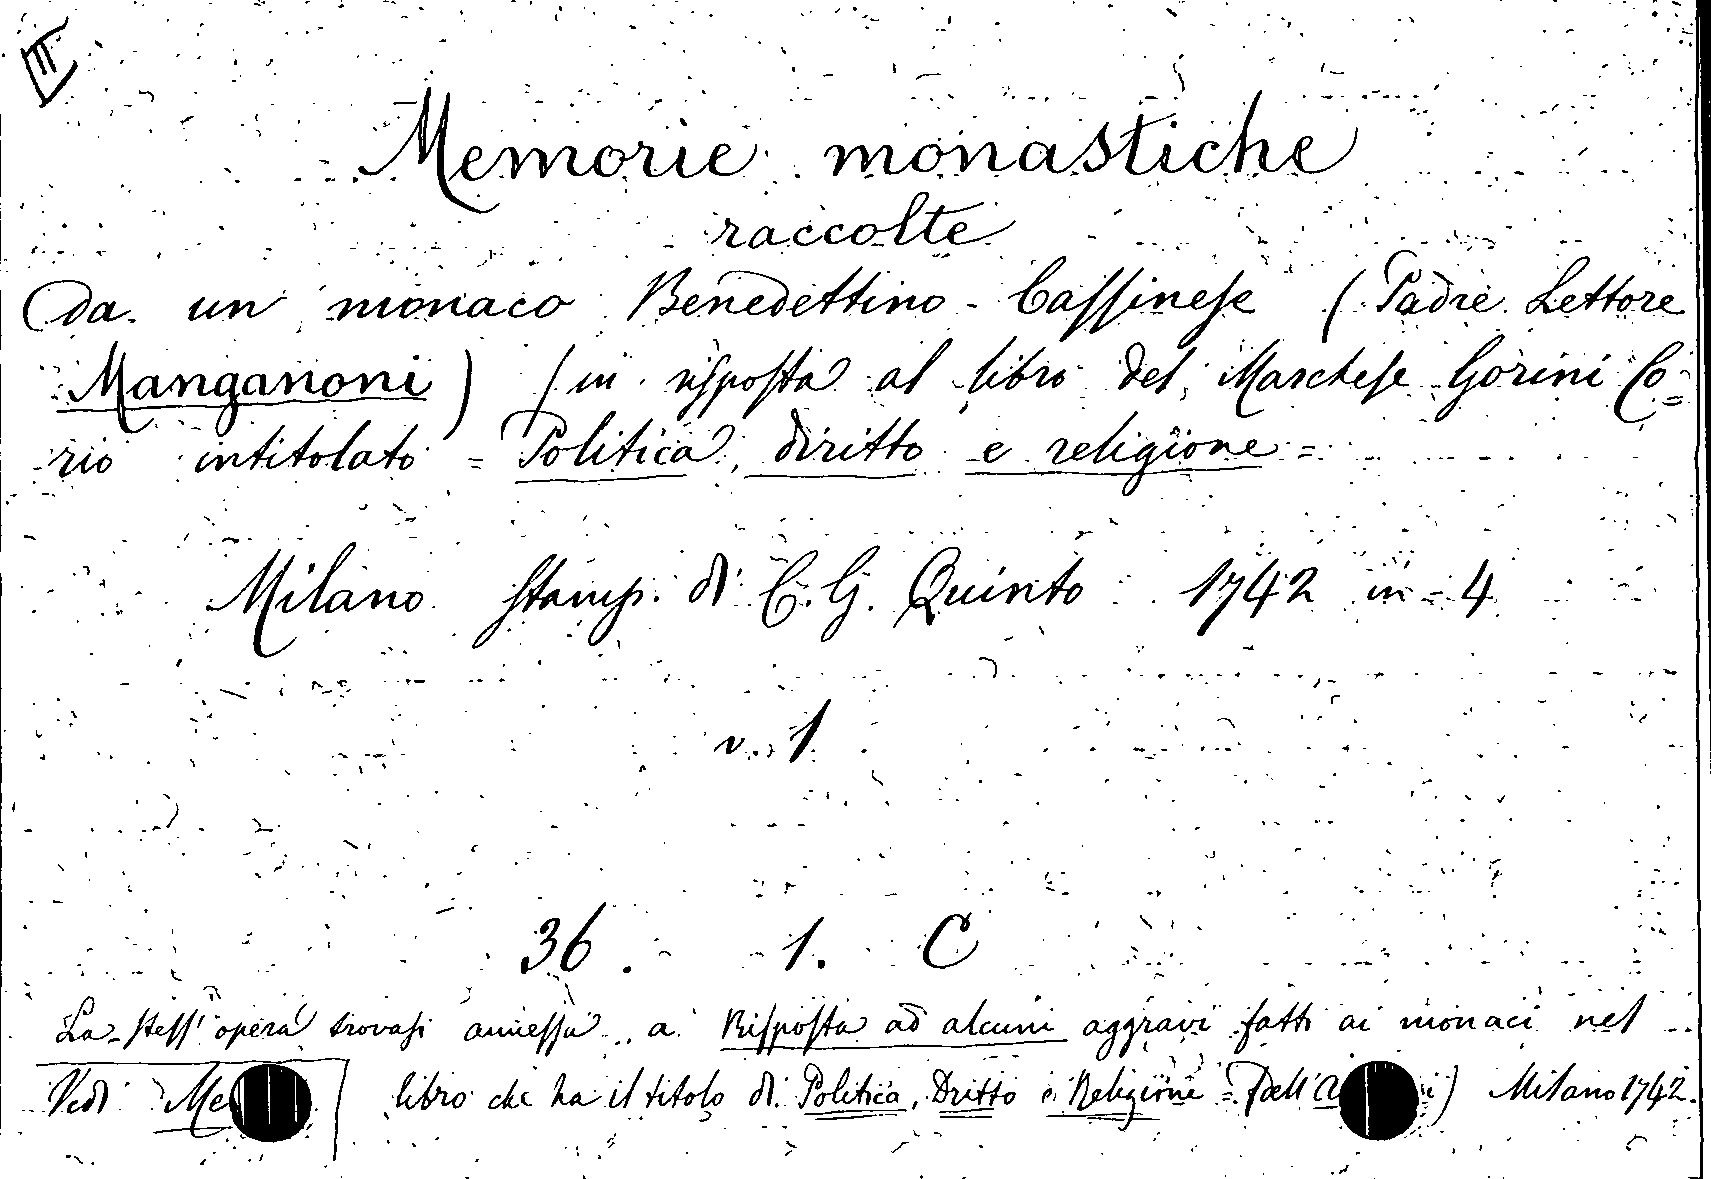 III
Memorie monastiche
raccolte
da un monaco Benedettino-Cassinese (Padre Lettore
Manganoni) (in risposta al libro del Marchese Gorini Co=
rio intitolato = Politica, diritto e religione =
Milano Stamp. di C. G. Quinto 1742 in 4
v. 1
36. 1. C
La stess' opera trovasi annessa a Risposta ad alcuni aggravi fatti ai monaci nel
Vedi libro che ha il titolo di Politica, Dritto e Religione = Milano 1742.